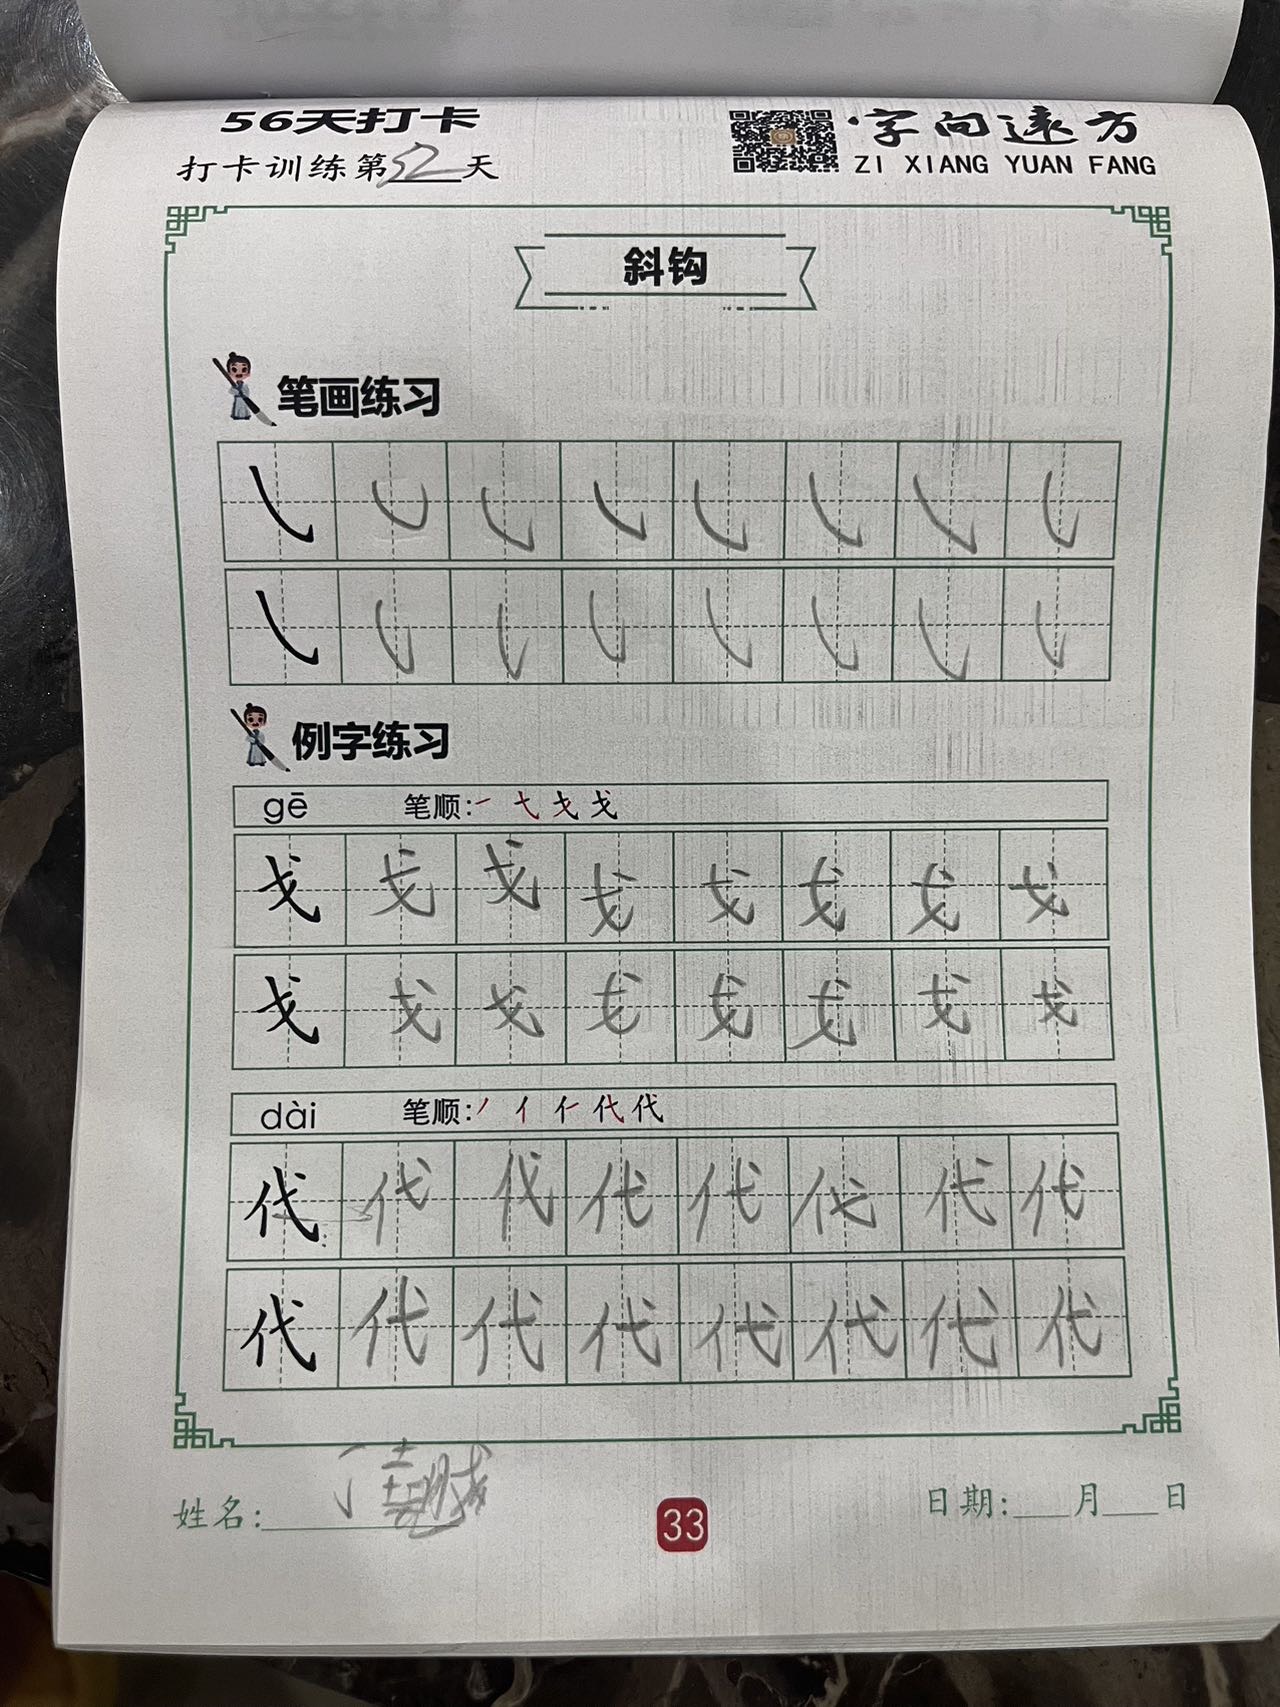 56天打卡
打卡训练第52天
字向遠方
ZI XIANG YUAN FANG
斜钩
笔画练习
㇂ ㇂ ㇂ ㇂ ㇂ ㇂ ㇂ ㇂
㇂ ㇂ ㇂ ㇂ ㇂ ㇂ ㇂ ㇂
例字练习
gē 笔顺:㇀ 弋 戈 戈
戈 戈 戈 戈 戈 戈 戈 戈
戈 戈 戈 戈 戈 戈 戈 戈
dài 笔顺:丿 亻 代 代
代 代 代 代 代 代 代 代
代 代 代 代 代 代 代 代
姓名:
33
日期:___月___日